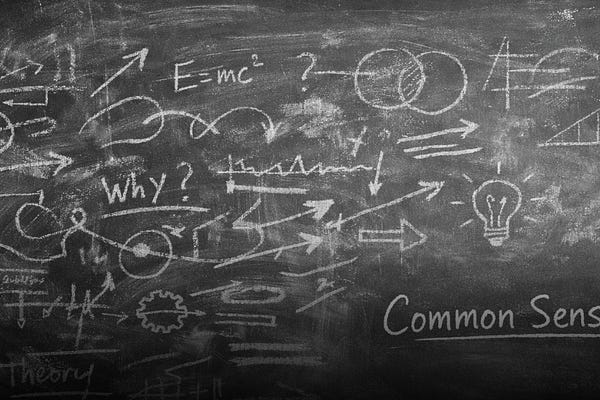 E=mc²
?
Why?
Common Sens
Theory